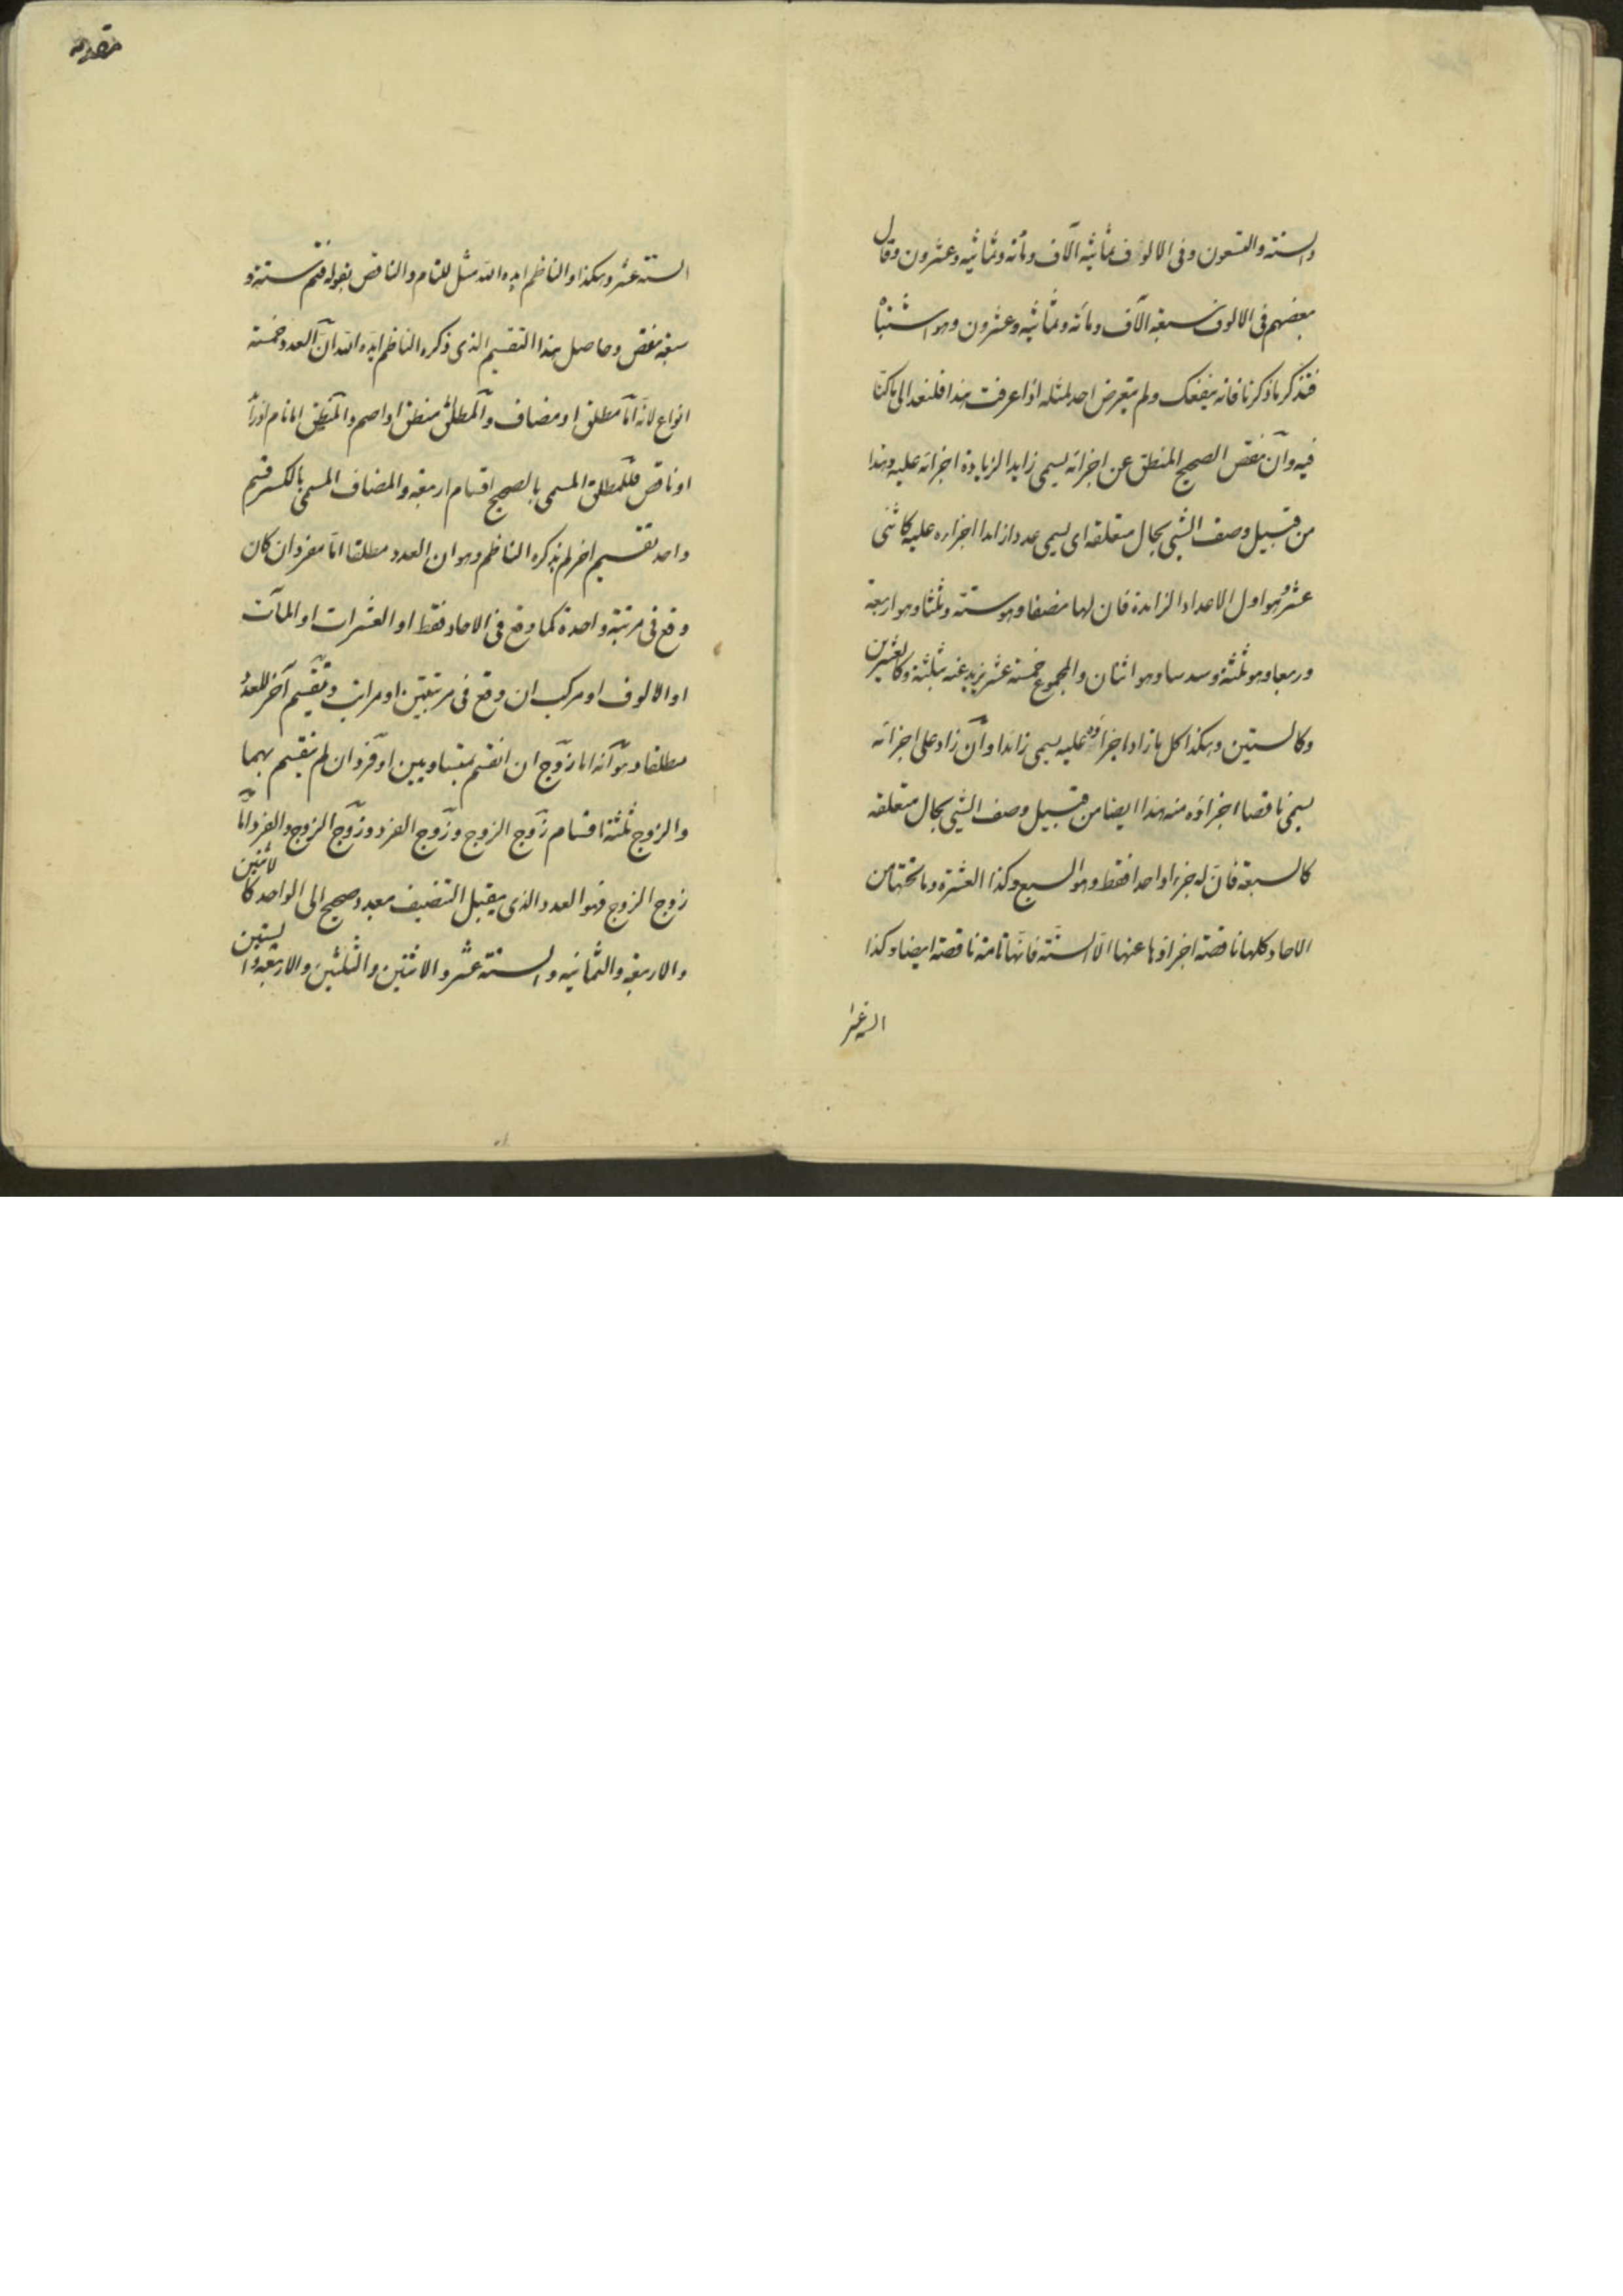 والستة والتسعون وفى الالوف ثمانية آلاف ومأته وثمانية وعشرون وقال
بعضهم فى الالوف سبعة آلاف ومائه وثمانية وعشرون وهو اشتباه
فتذكر ما ذكرنا فانه ينفعك ولم يتعرض احد لمثله اذا عرفت هذا فلنعد الى ما كنا
فيه وان نقص الصحيح المنطق عن اجزائه يسمى زايدا لزيادة اجزائه عليه وهذا
من قبيل وصف الشيئ بحال متعلقه اى يسمى عددا زايدا اجزاءه عليه كاثنى
عشر وهو اول الاعداد الزايدة فان لها نصفا وهو ستة وثلثا وهو اربعة
وربعا وهو ثلثة وسدسا وهو اثنان والمجموع خمسة عشر يزيد عنه بثلثة وكالعشرين
وكالستين وهكذا كل ما زاد اجزاؤه عليه يسمى زائدا وان زاد على اجزائه
يسمى ناقصا اجزاؤه منه هذا ايضا من قبيل وصف الشيئ بحال متعلقه
كالسبعة فان له جزءا واحدا فقط وهو السبع وكذا العشرة وما تحتها من
الاحاد كلها ناقصة اجزاؤها عنها الا الستة فانها تامة ناقصة ايضا وكذا
الستة عشر
مقدمه
الستة عشر وهكذا والناظم ايده الله مثل للتام والناقص بقوله فتم ستة و
سبعة نقص وحاصل هذا التقسيم الذى ذكره الناظم ايده الله ان العدد خمسة
انواع لانه اما مطلق او مضاف والمطلق منطق او اصم والمنطق اما تام او زائد
او ناقص فللمطلق المسمى بالصحيح اقسام اربعة والمضاف المسمى بالكسر قسم
واحد تقسيم اخر لم يذكره الناظم وهو ان العدد مطلقا اما مفرد ان كان
وقع فى مرتبة واحدة كما وقع فى الاحاد فقط او العشرات او المآت
او الالوف او مركب ان وقع فى مرتبتين او مراتب وتقسيم آخر للعدد
مطلقا وهو انه اما زوج ان انقسم بمتساويين او فرد ان لم ينقسم بهما
والزوج ثلثة اقسام زوج الزوج وزوج الفرد وزوج الزوج والفرد اما
زوج الزوج فهو العدد الذى يقبل التنصيف بعدد صحيح الى الواحد كالاثنين
والاربعة والثمانية والستة عشر والاثنين والثلثين والاربعة والستين